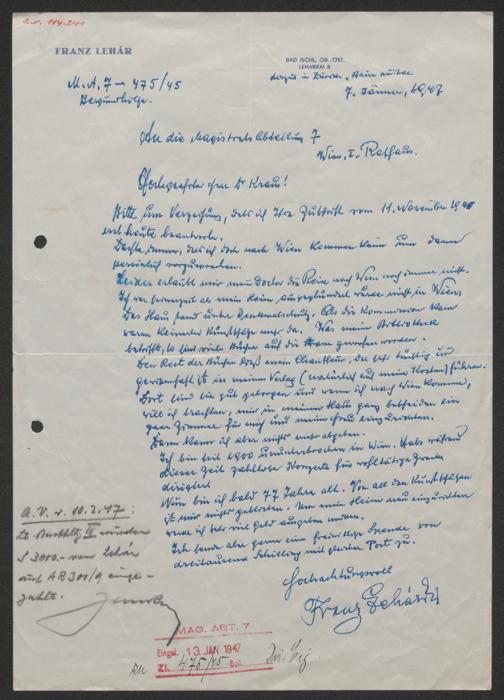 A.V. 114.241
FRANZ LEHÁR
BAD ISCHL, OB.-ÖST.
LEHARKAI 8
derzeit in Zürich, Baur au lac
7. Jänner, 1947
M.A. 7 – 475/45
Bergungshilfe.
An die Magistrats Abteilung 7
Wien, I. Rathaus.
Hochgeehrter Herr Dr Kraus!
Bitte um Verzeihung, dass ich Ihre Zuschrift vom 11. November 1946
erst heute beantworte.
Dachte immer, dass ich doch nach Wien kommen kann um dann
persönlich vorzusprechen.
Leider erlaubt mir mein Doctor die Reise nach Wien noch immer nicht.
Ich war seinerzeit als mein Heim ausgeplündert wurde nicht in Wien,
Das Haus stand unter Denkmalschutz. Als die Kommission kam
waren keinerlei Kunstschätze mehr da. Was meine Bibliothek
betrifft, so sind viele Bücher auf die Strasse geworfen worden.
Den Rest der Bücher liess mein Chauffeur, der sehr tüchtig und
gewissenhaft ist in meinen Verlag (natürlich auf meine Kosten) führen.
Dort sind sie gut geborgen und wenn ich nach Wien komme,
will ich trachten, mir in meinem Haus ganz bescheiden ein
paar Zimmer für mich und meine Frau einzurichten.
Dann kann ich aber nichts mehr abgeben.
Ich bin seit 1900 ununterbrochen in Wien. Habe während
dieser Zeit zahllose Konzerte für wohltätige Zwecke
dirigiert
Nun bin ich bald 77 Jahre alt. Von all den Kunstschätzen
ist mir nichts geblieben. Um mein Heim neu einzurichten
werde ich sehr viel Geld ausgeben müssen.
Ich sende aber gerne eine freiwillige Spende von
dreitausend Schilling mit gleicher Post zu.
Hochachtungsvoll
Franz Lehár
A.V. v. 10.2.47:
Lt. Buchhltg IV wurden
S 3000.- von Lehár
auf AR 301/9 einge-
zahlt.
MAG. ABT. 7
Eingel. 13. JAN 1947
Zl. 475/45 Beil.